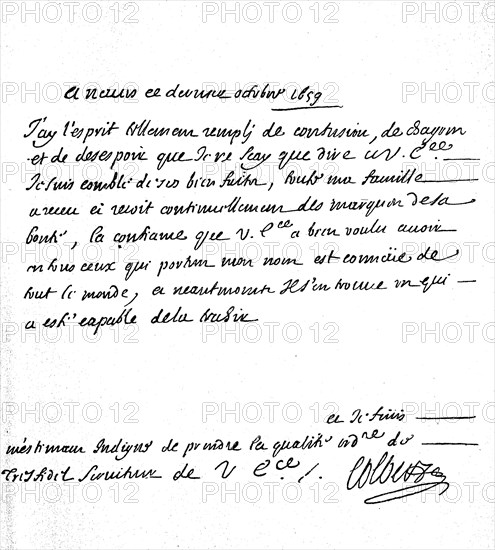 A nevers ce dernier octobre 1659
J'ay l'esprit tellement remply de confusion, de chagrin
et de desespoir que Je ne scay que dire a V. Ece
Je suis comblé de ses bien faits, toute ma famille
a receu et reçoit continuellement des marques de sa
bonté, la confiance que V. Ece a bien voulu avoir
en tous ceux qui portent mon nom est connüe de
tout le monde, et neantmoins Il s'en trouve un qui
a esté capable de la trahir
et Je suis
m'estimant Indigne de prendre la qualité ordre de
tres fidel serviteur de V Ece
Colbert
PHOTO12